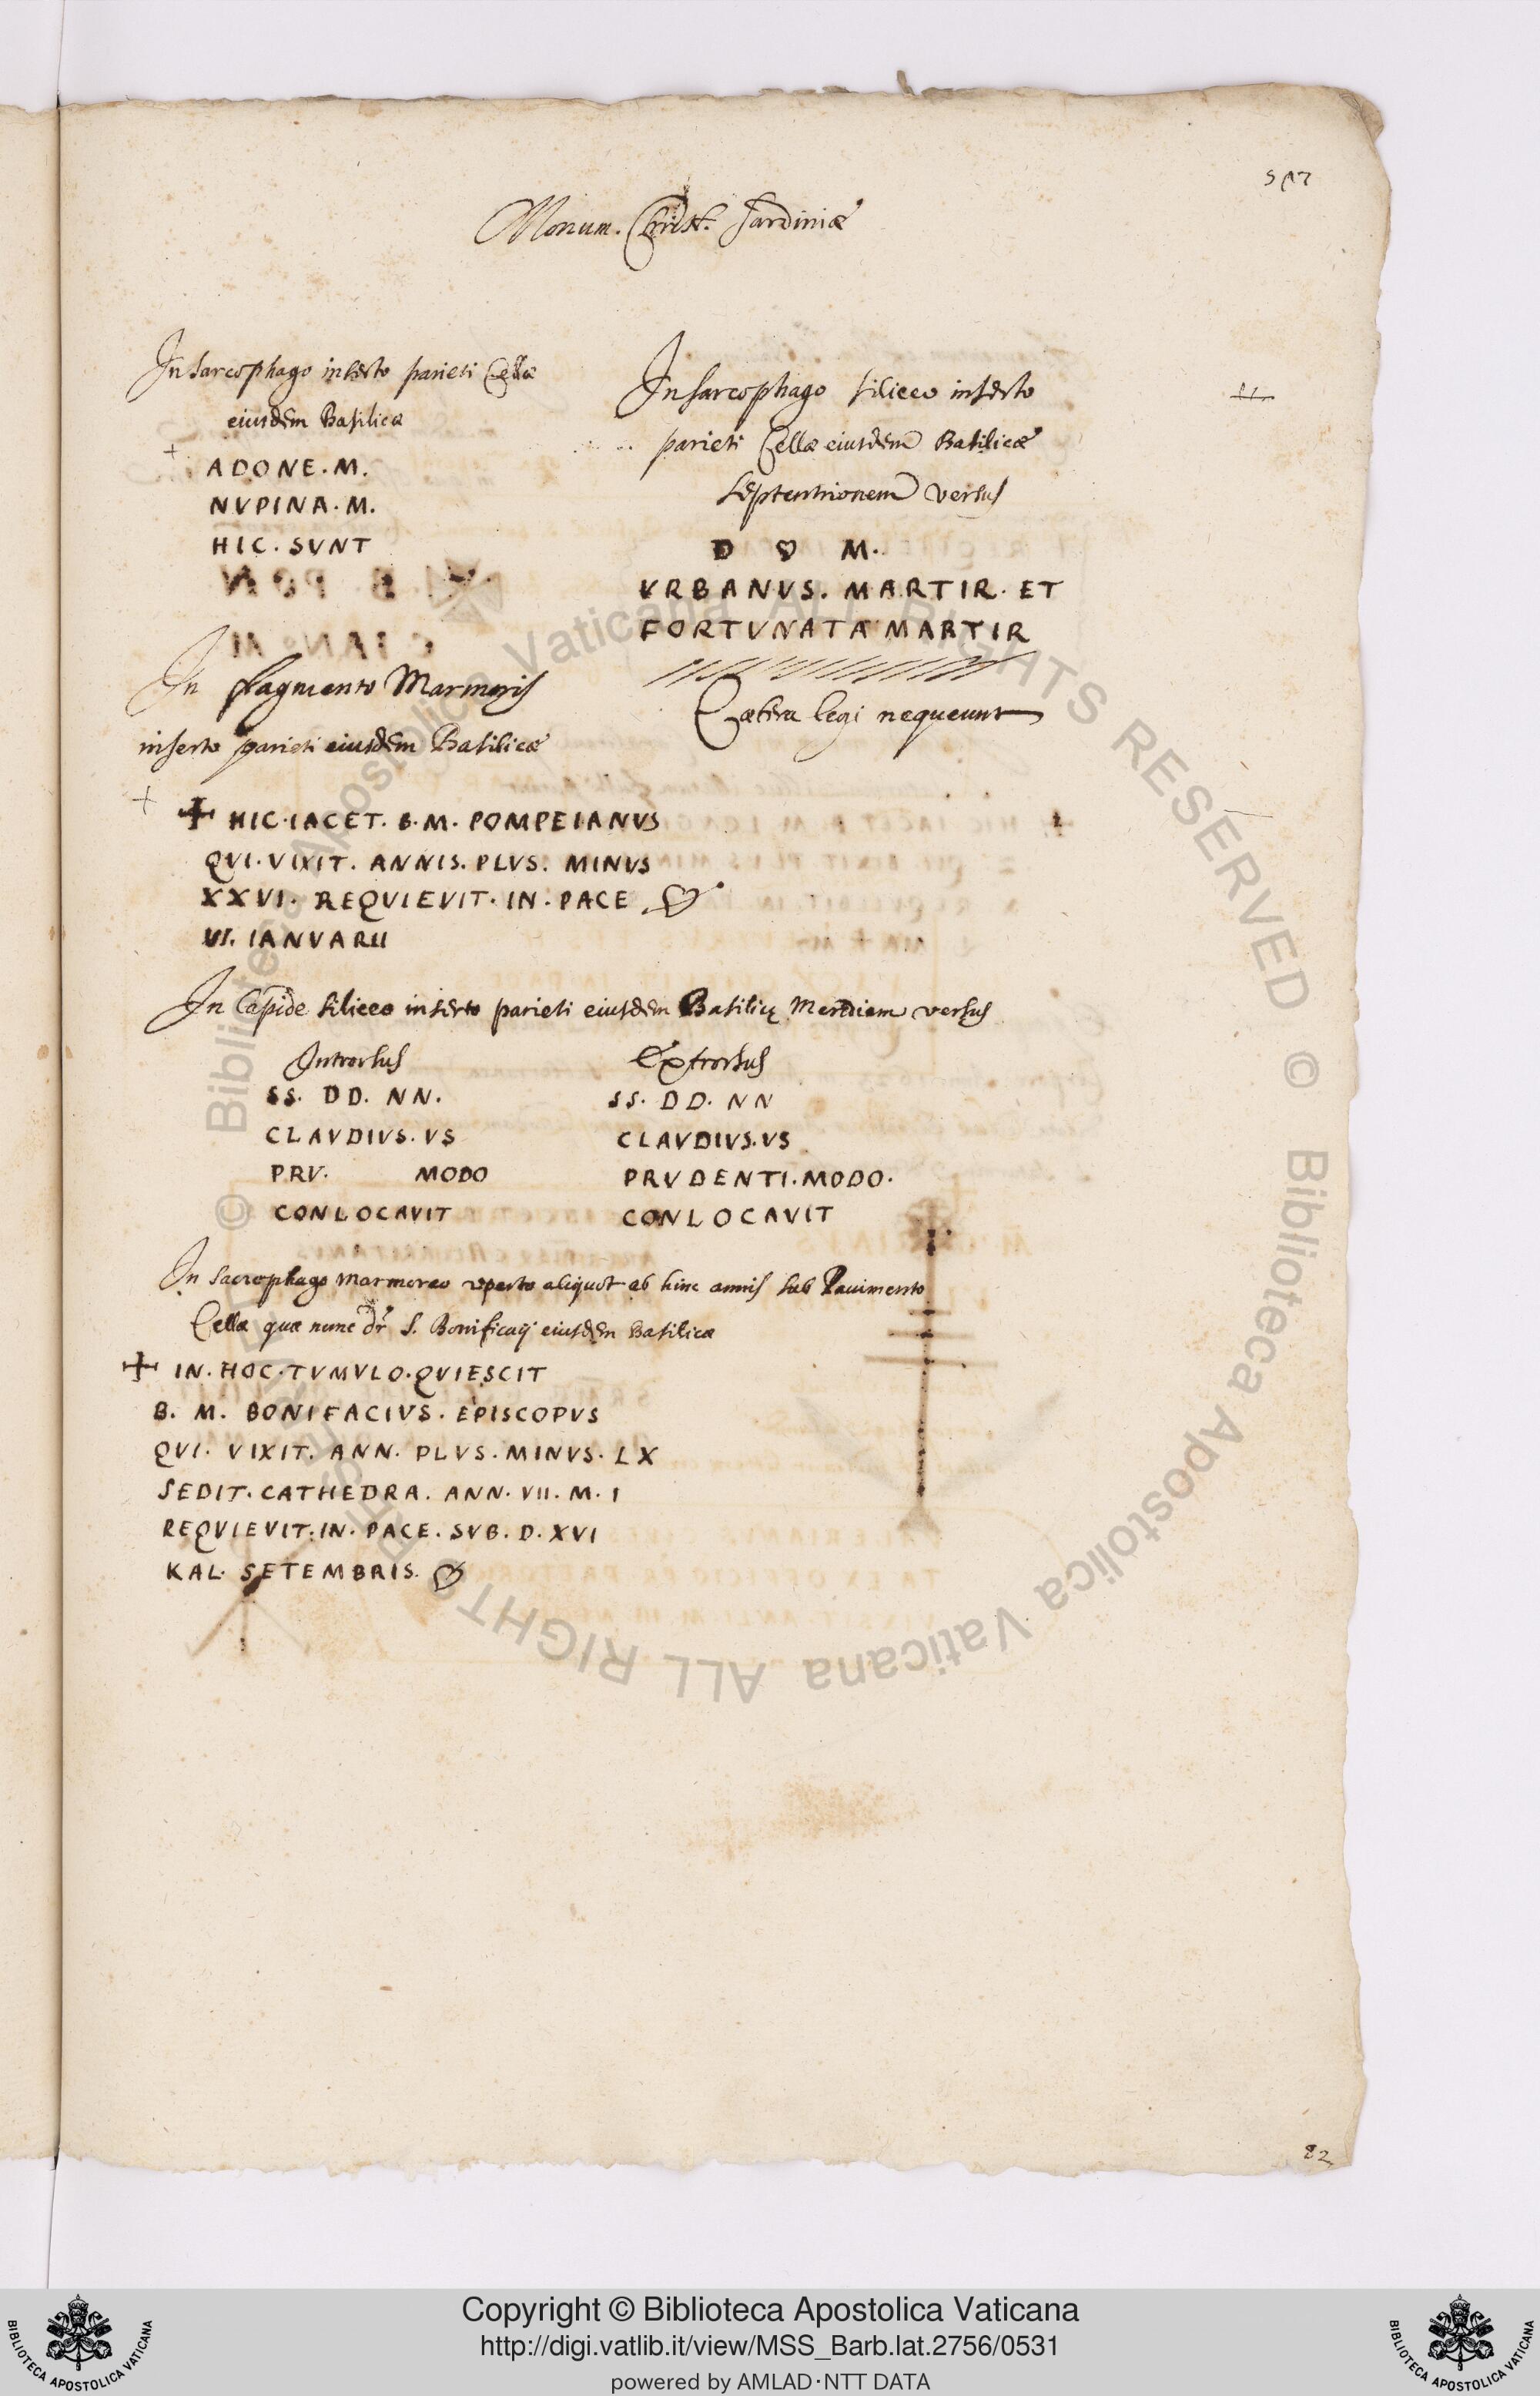 Monum. Christ. Sardiniæ
In sarcophago inserto parieti Cellæ
eiusdem Basilicæ
+
ADONE. M.
NVPINA. M.
HIC. SVNT
In sarcophago siliceo inserto
parieti Cellæ eiusdem Basilicæ
Septentrionem versus
D ♡ M.
VRBANVS. MARTIR. ET
FORTVNATA MARTIR
Cætera legi nequeunt
In fragmento Marmoris
inserto parieti eiusdem Basilicæ
+
✠ HIC. IACET. B. M. POMPEIANVS
QVI. VIXIT. ANNIS. PLVS. MINVS
XXVI. REQVIEVIT. IN. PACE ♡
VI. IANVARII
In Lapide siliceo inserto parieti eiusdem Basilicę Meridiem versus
Introrsus
SS. DD. NN.
CLAVDIVS. VS
PRV. MODO
CONLOCAVIT
Extrorsus
SS. DD. NN
CLAVDIVS. VS
PRVDENTI. MODO.
CONLOCAVIT
In sacrophago marmoreo aperto aliquot ab hinc annis sub Pauimento
Cellæ quæ nunc dr S. Bonifacij eiusdem Basilicæ
✠ IN. HOC. TVMVLO. QVIESCIT
B. M. BONIFACIVS. EPISCOPVS
QVI. VIXIT. ANN. PLVS. MINVS. LX
SEDIT. CATHEDRA. ANN. VII. M. I
REQVIEVIT. IN. PACE. SVB. D. XVI
KAL. SETEMBRIS. ♡
82
© Biblioteca Apostolica Vaticana ALL RIGHTS RESERVED © Biblioteca Apostolica Vaticana ALL RIGHTS RESERVED
Copyright © Biblioteca Apostolica Vaticana
http://digi.vatlib.it/view/MSS_Barb.lat.2756/0531
powered by AMLAD·NTT DATA
BIBLIOTECA APOSTOLICA VATICANA
BIBLIOTECA APOSTOLICA VATICANA